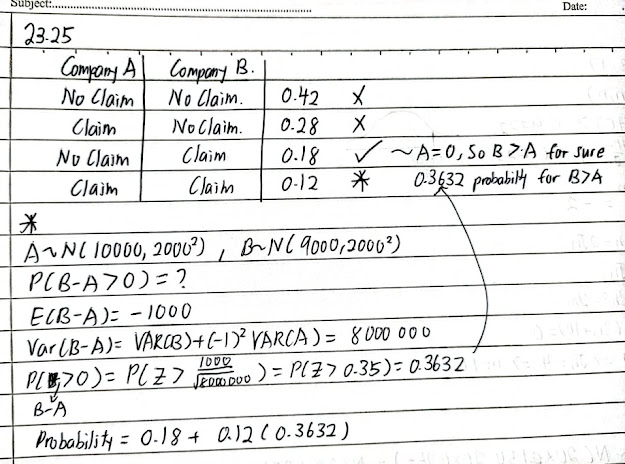 Subject:
Date:
23.25
Company A Company B.
No Claim No Claim. 0.42 X
Claim No Claim. 0.28 X
No Claim Claim 0.18 ✓ ~A=0, So B>A for sure
Claim Claim 0.12 * 0.3632 probability for B>A
*
A~N(10000, 2000²), B~N(9000, 2000²)
P(B-A>0) = ?
E(B-A) = -1000
Var(B-A) = VAR(B)+(-1)² VAR(A) = 8000 000
P( >0) = P(Z > 1000/√8000000) = P(Z > 0.35) = 0.3632
B-A
Probability = 0.18 + 0.12 (0.3632)